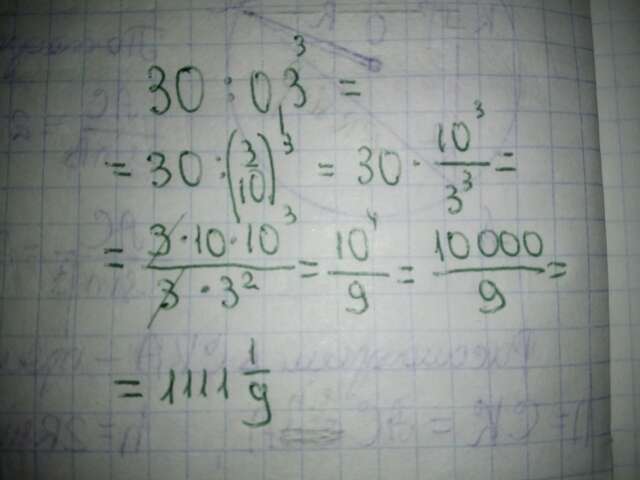 30 : 0,3³ =
= 30 : (3/10)³ = 30 · 10³/3³ =
= 3 · 10 · 10³ / 3 · 3² = 10⁴/9 = 10 000/9 =
= 1111 1/9